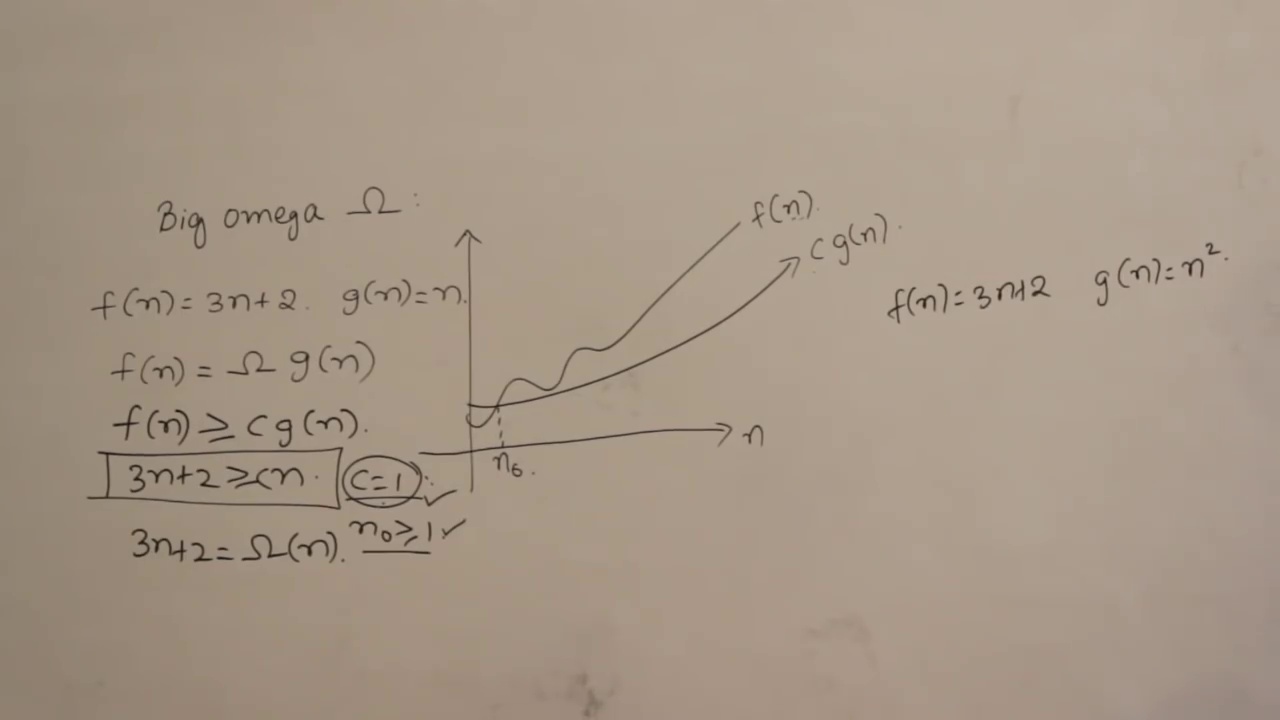 Big omega Ω :
f(n) = 3n+2. g(n) = n.
f(n) = Ω g(n)
f(n) ≥ c g(n).
3n+2 ≥ cn. c=1 ✓
3n+2 = Ω(n). n₀ ≥ 1 ✓
f(n).
c g(n).
n
n₀.
f(n) = 3n+2 g(n) = n².